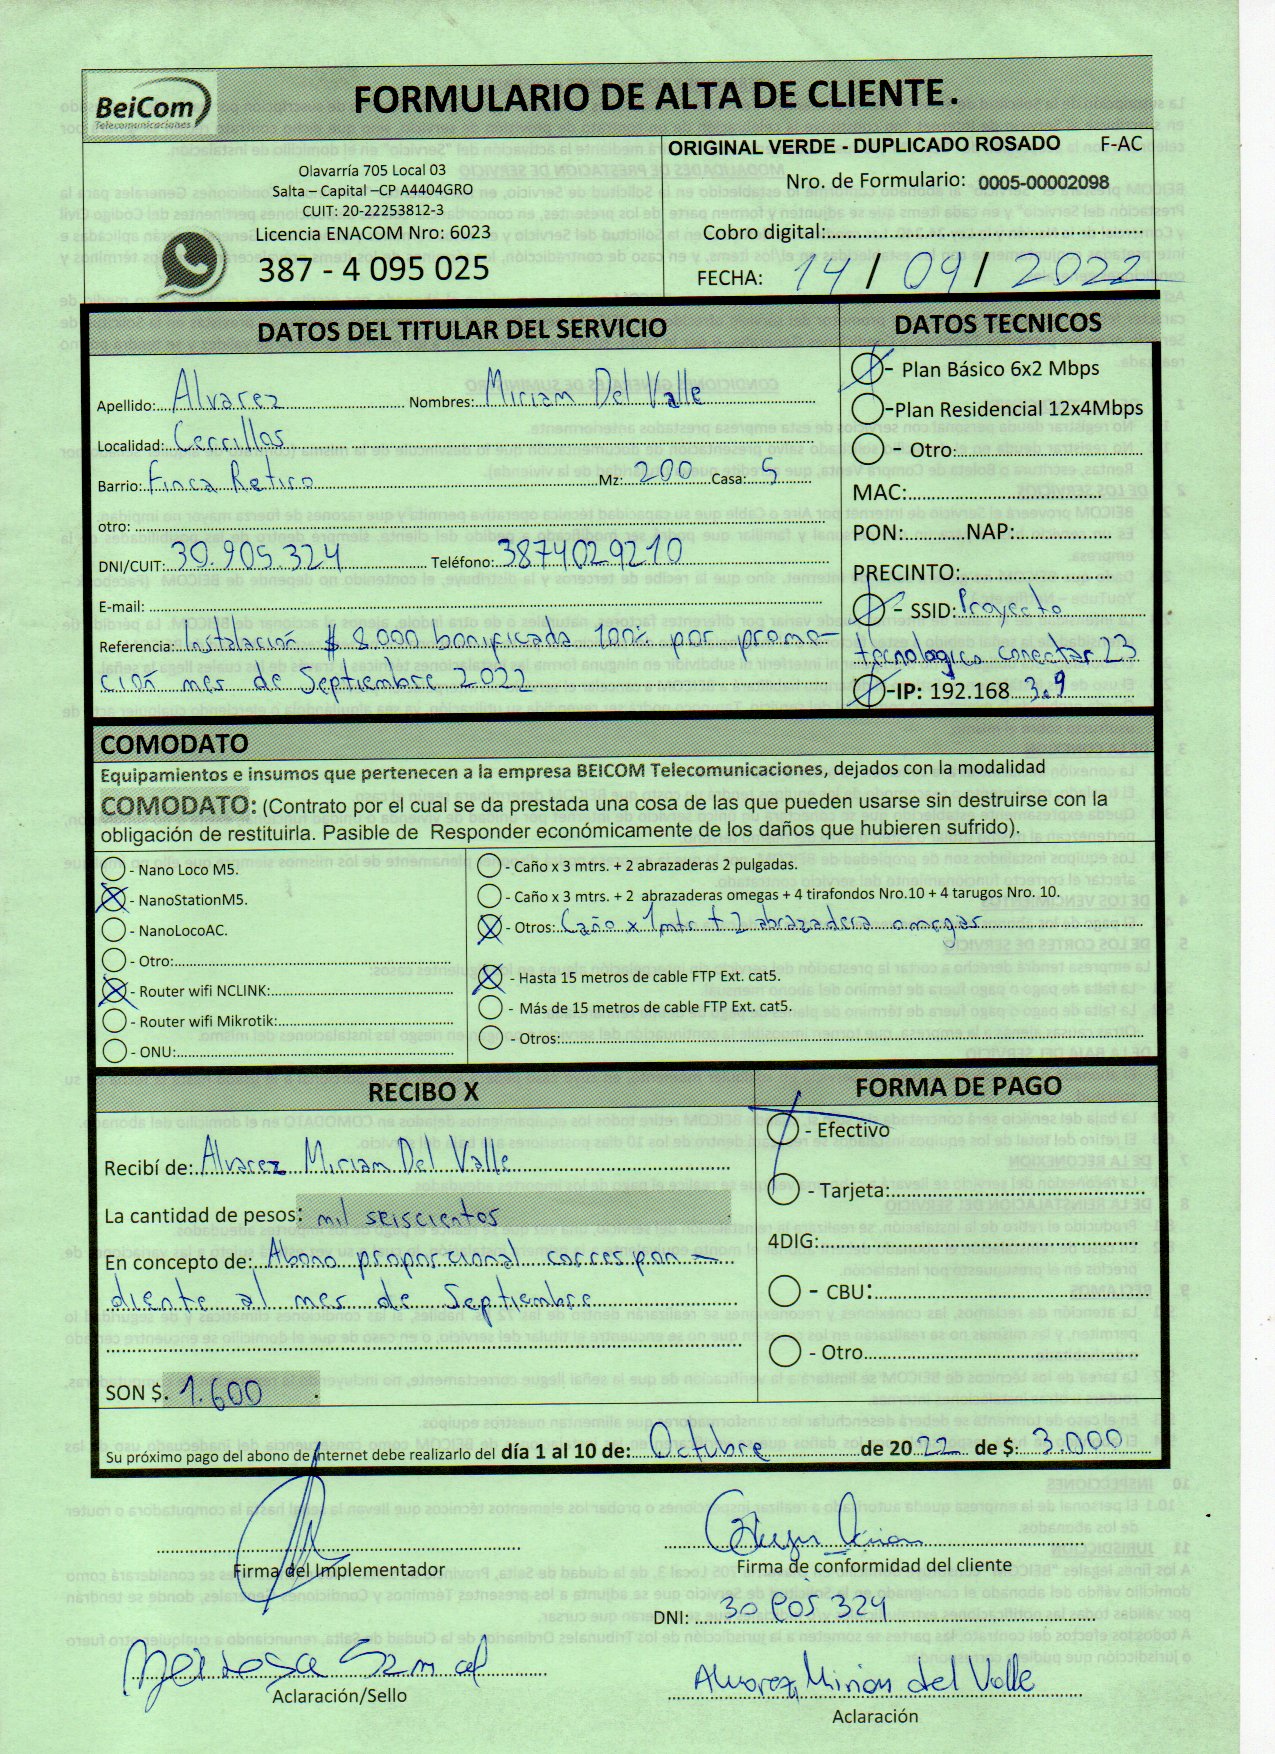 BeiCom
Telecomunicaciones
FORMULARIO DE ALTA DE CLIENTE.
Olavarría 705 Local 03
Salta – Capital –CP A4404GRO
CUIT: 20-22253812-3
Licencia ENACOM Nro: 6023
387 - 4 095 025
ORIGINAL VERDE - DUPLICADO ROSADO F-AC
Nro. de Formulario: 0005-00002098
Cobro digital:
FECHA: 14 / 09 / 2022
DATOS DEL TITULAR DEL SERVICIO
Apellido: Alvarez Nombres: Miriam Del Valle
Localidad: Cerrillos
Barrio: Finca Retiro Mz: 200 Casa: 5
otro:
DNI/CUIT: 30.905.324 Teléfono: 3874029210
E-mail:
Referencia: Instalación $ 8.000 bonificada 100% por promo-
ción mes de Septiembre 2022
DATOS TECNICOS
- Plan Básico 6x2 Mbps
-Plan Residencial 12x4Mbps
- Otro:
MAC:
PON: NAP:
PRECINTO:
- SSID: Proyecto
tecnologico conectar 23
-IP: 192.168. 3.9
COMODATO
Equipamientos e insumos que pertenecen a la empresa BEICOM Telecomunicaciones, dejados con la modalidad
COMODATO: (Contrato por el cual se da prestada una cosa de las que pueden usarse sin destruirse con la
obligación de restituirla. Pasible de Responder económicamente de los daños que hubieren sufrido).
- Nano Loco M5.
- NanoStationM5.
- NanoLocoAC.
- Otro:
- Router wifi NCLINK:
- Router wifi Mikrotik:
- ONU:
- Caño x 3 mtrs. + 2 abrazaderas 2 pulgadas.
- Caño x 3 mtrs. + 2 abrazaderas omegas + 4 tirafondos Nro.10 + 4 tarugos Nro. 10.
- Otros: Caño x 1 mtr + 2 abrazadera omegas
- Hasta 15 metros de cable FTP Ext. cat5.
- Más de 15 metros de cable FTP Ext. cat5.
- Otros:
RECIBO X
Recibí de: Alvarez Miriam Del Valle
La cantidad de pesos: mil seiscientos
En concepto de: Abono proporcional correspon-
diente al mes de Septiembre
SON $. 1.600 .
FORMA DE PAGO
- Efectivo
- Tarjeta:
4DIG:
- CBU:
- Otro
Su próximo pago del abono de internet debe realizarlo del día 1 al 10 de: Octubre de 2022 de $: 3.000
Firma del Implementador
Firma de conformidad del cliente
DNI: 30 905 324
Aclaración/Sello
Alvarez, Mirian del Valle
Aclaración